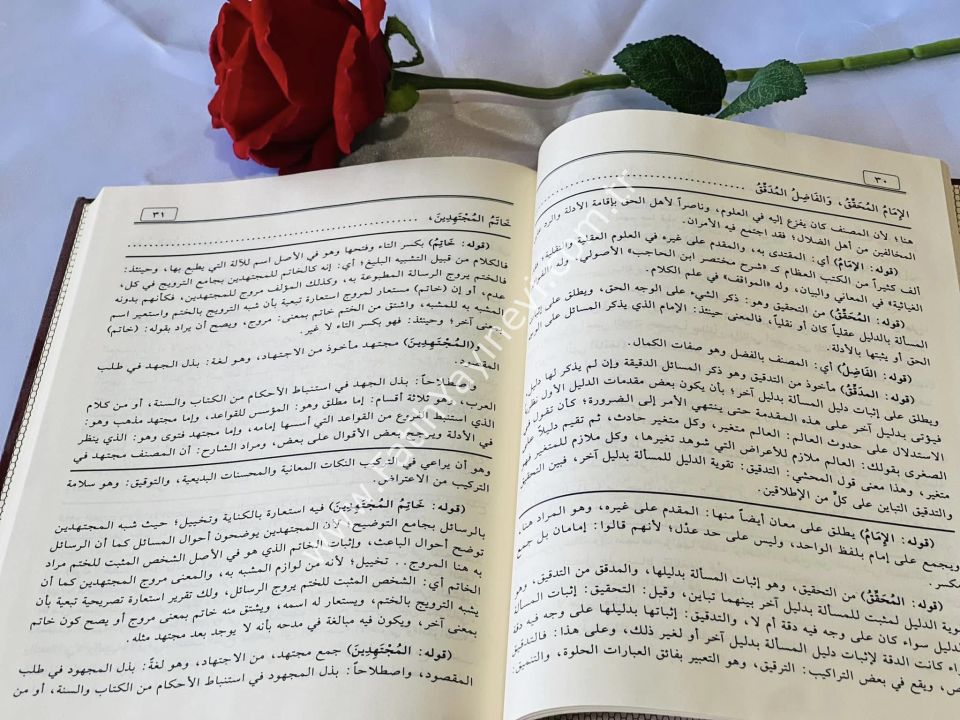 ٣٠
الإمَامُ المُحَقِّقُ، وَالفَاضِلُ المُدَقِّقُ
هنا؛ لأن المصنف كان يفزع إليه في العلوم، وناصراً لأهل الحق بإقامة الأدلة والرد
المخالفين من أهل الضلال؛ فقد اجتمع فيه الأمران.
(قوله: الإِمَامُ) أي: المقتدى به، والمقدم على غيره في العلوم العقلية والنقلية
ألف كثيراً من الكتب العظام كـ «شرح مختصر ابن الحاجب» الأصولي، وله
الغياثية» في المعاني والبيان، وله «المواقف» في علم الكلام.
(قوله: المُحَقِّقُ) من التحقيق وهو: ذكر الشيء على الوجه الحق، ويطلق على
المسألة بالدليل عقلياً كان أو نقلياً، فالمعنى حينئذ: الإمام الذي يذكر المسائل على الوجه
الحق أو يثبتها بالأدلة.
(قوله: الفَاضِلُ) أي: المصنف بالفضل وهو صفات الكمال.
(قوله: المدَقِّقُ) مأخوذ من التدقيق وهو ذكر المسائل الدقيقة وإن لم يذكر لها دليل
ويطلق على إثبات دليل المسألة بدليل آخر؛ بأن يكون بعض مقدمات الدليل الأول نظرياً
فيؤتى بدليل آخر على هذه المقدمة حتى ينتهي الأمر إلى الضرورة؛ كأن تقول في
الاستدلال على حدوث العالم: العالم متغير، وكل متغير حادث، ثم تقيم دليلاً على
الصغرى بقولك: العالم ملازم للأعراض التي شوهد تغيرها، وكل ملازم للمتغير فهو
متغير، وهذا معنى قول المحشي: التدقيق: تقوية الدليل للمسألة بدليل آخر، فبين التحقيق
والتدقيق التباين على كلٍّ من الإطلاقين.
(قوله: الإِمَامُ) يطلق على معان أيضاً منها: المقدم على غيره، وهو المراد هنا،
ويجمع على إمام بلفظ الواحد، وليس على حد عدْل؛ لأنهم قالوا: إمامان بل جمع
مكسر.
(قوله: المُحَقِّقُ) من التحقيق، وهو إثبات المسألة بدليلها، والمدقق من التدقيق، وهو
الدليل لمثبت للمسألة بدليل آخر بينهما تباين، وقيل: التحقيق: إثبات المسألة
الدليل سواء كان على وجه فيه دقة أم لا، والتدقيق: إثباتها بدليلها على وجه فيه دقة
كانت الدقة لإثبات دليل المسألة بدليل آخر أو لغير ذلك، وعلى هذا: فالتدقيق
ويقع في بعض التراكيب: الترقيق، وهو التعبير بفائق العبارات الحلوة، والتنميق:
٣١
خَاتَمُ المُجْتَهِدِينَ،
(قوله: خَاتِمُ) بكسر التاء وفتحها وهو في الأصل اسم للآلة التي يطبع بها، وحينئذ:
فالكلام من قبيل التشبيه البليغ؛ أي: إنه كالخاتم للمجتهدين بجامع الترويج في كل،
فالختم يروج الرسالة المطبوعة به، وكذلك المؤلف مروج للمجتهدين، فكأنهم بدونه
عدم، أو إن (خاتم) مستعار لمروج استعارة تبعية بأن شبه الترويج بالختم واستعير اسم
المشبه به للمشبه، واشتق من الختم خاتم بمعنى: مروج، ويصح أن يراد بقوله: (خاتم)
معنى آخر؛ وحينئذ: فهو بكسر التاء لا غير.
و(المُجْتَهِدِينَ) مجتهد مأخوذ من الاجتهاد، وهو لغة: بذل الجهد في طلب
المقصود.
واصطلاحاً: بذل الجهد في استنباط الأحكام من الكتاب والسنة، أو من كلام
العرب، وهو ثلاثة أقسام: إما مطلق وهو: المؤسس للقواعد، وإما مجتهد مذهب وهو:
الذي استنبط الفروع من القواعد التي أسسها إمامه، وإما مجتهد فتوى وهو: الذي ينظر
في الأدلة ويرجح بعض الأقوال على بعض، ومراد الشارح: أن المصنف مجتهد في
وهو أن يراعي في التركيب النكات المعانية والمحسنات البديعية، والتوفيق: وهو سلامة
التركيب من الاعتراض.
(قوله: خَاتِمُ المُجْتَهِدِينَ) فيه استعارة بالكناية وتخييل؛ حيث شبه المجتهدين
بالرسائل بجامع التوضيح؛ لأن المجتهدين يوضحون أحوال المسائل كما أن الرسائل
توضح أحوال الباعث، وإثبات الخاتم الذي هو في الأصل الشخص المثبت للختم مراد
به هنا المروج.. تخييل؛ لأنه من لوازم المشبه به، والمعنى مروج المجتهدين كما أن
الخاتم أي: الشخص المثبت للختم يروج الرسائل، ولك تقرير استعارة تصريحية تبعية بأن
يشبه الترويج بالختم، ويستعار له اسمه، ويشتق منه خاتم بمعنى مروج أو يصح كون خاتم
بمعنى آخر، ويكون فيه مبالغة في مدحه بأنه لا يوجد بعد مجتهد مثله.
(قوله: المُجْتَهِدِينَ) جمع مجتهد، من الاجتهاد، وهو لغةً: بذل المجهود في طلب
المقصود، واصطلاحاً: بذل المجهود في استنباط الأحكام من الكتاب والسنة، أو من
www.Fatihyayinevi.com.tr